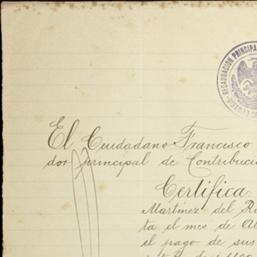 RECAUDACION PRINCIPAL
El Ciudadano Francisco
dor principal de Contribucio
Certifica
Martinez del Rio
ta el mes de
el pago de sus